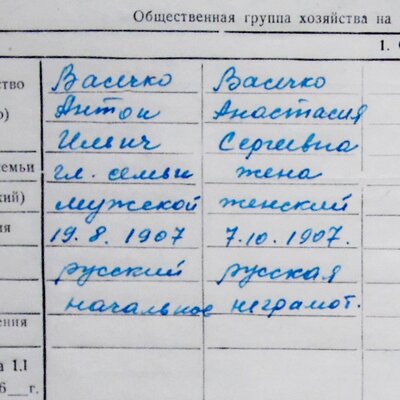 Общественная группа хозяйства на
1.
ство Васечко Васечко
о) Антон Анастасия
Ильич Сергеевна
емьи гл. семьи жена
кий) мужской женский
ия 19.8.1907 7.10.1907.
русский русская
начальное неграмот.
ения
а 1.I
6 г.